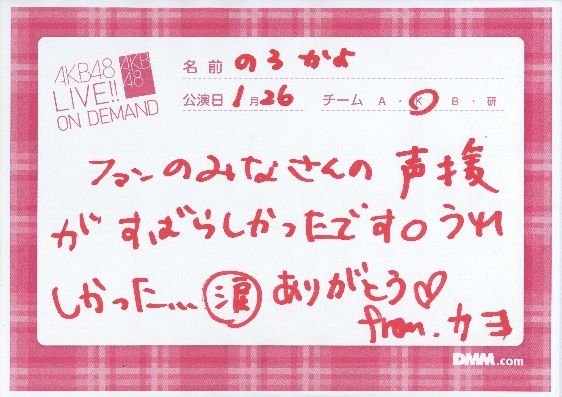 AKB48
LIVE!!
ON DEMAND
AKB
48
名前 のろかよ
公演日 1月26 チーム A・K・B・研
ファンのみなさんの声援
がすばらしかったです。うれ
しかった... 涙 ありがとう♡
from.カヨ
DMM.com